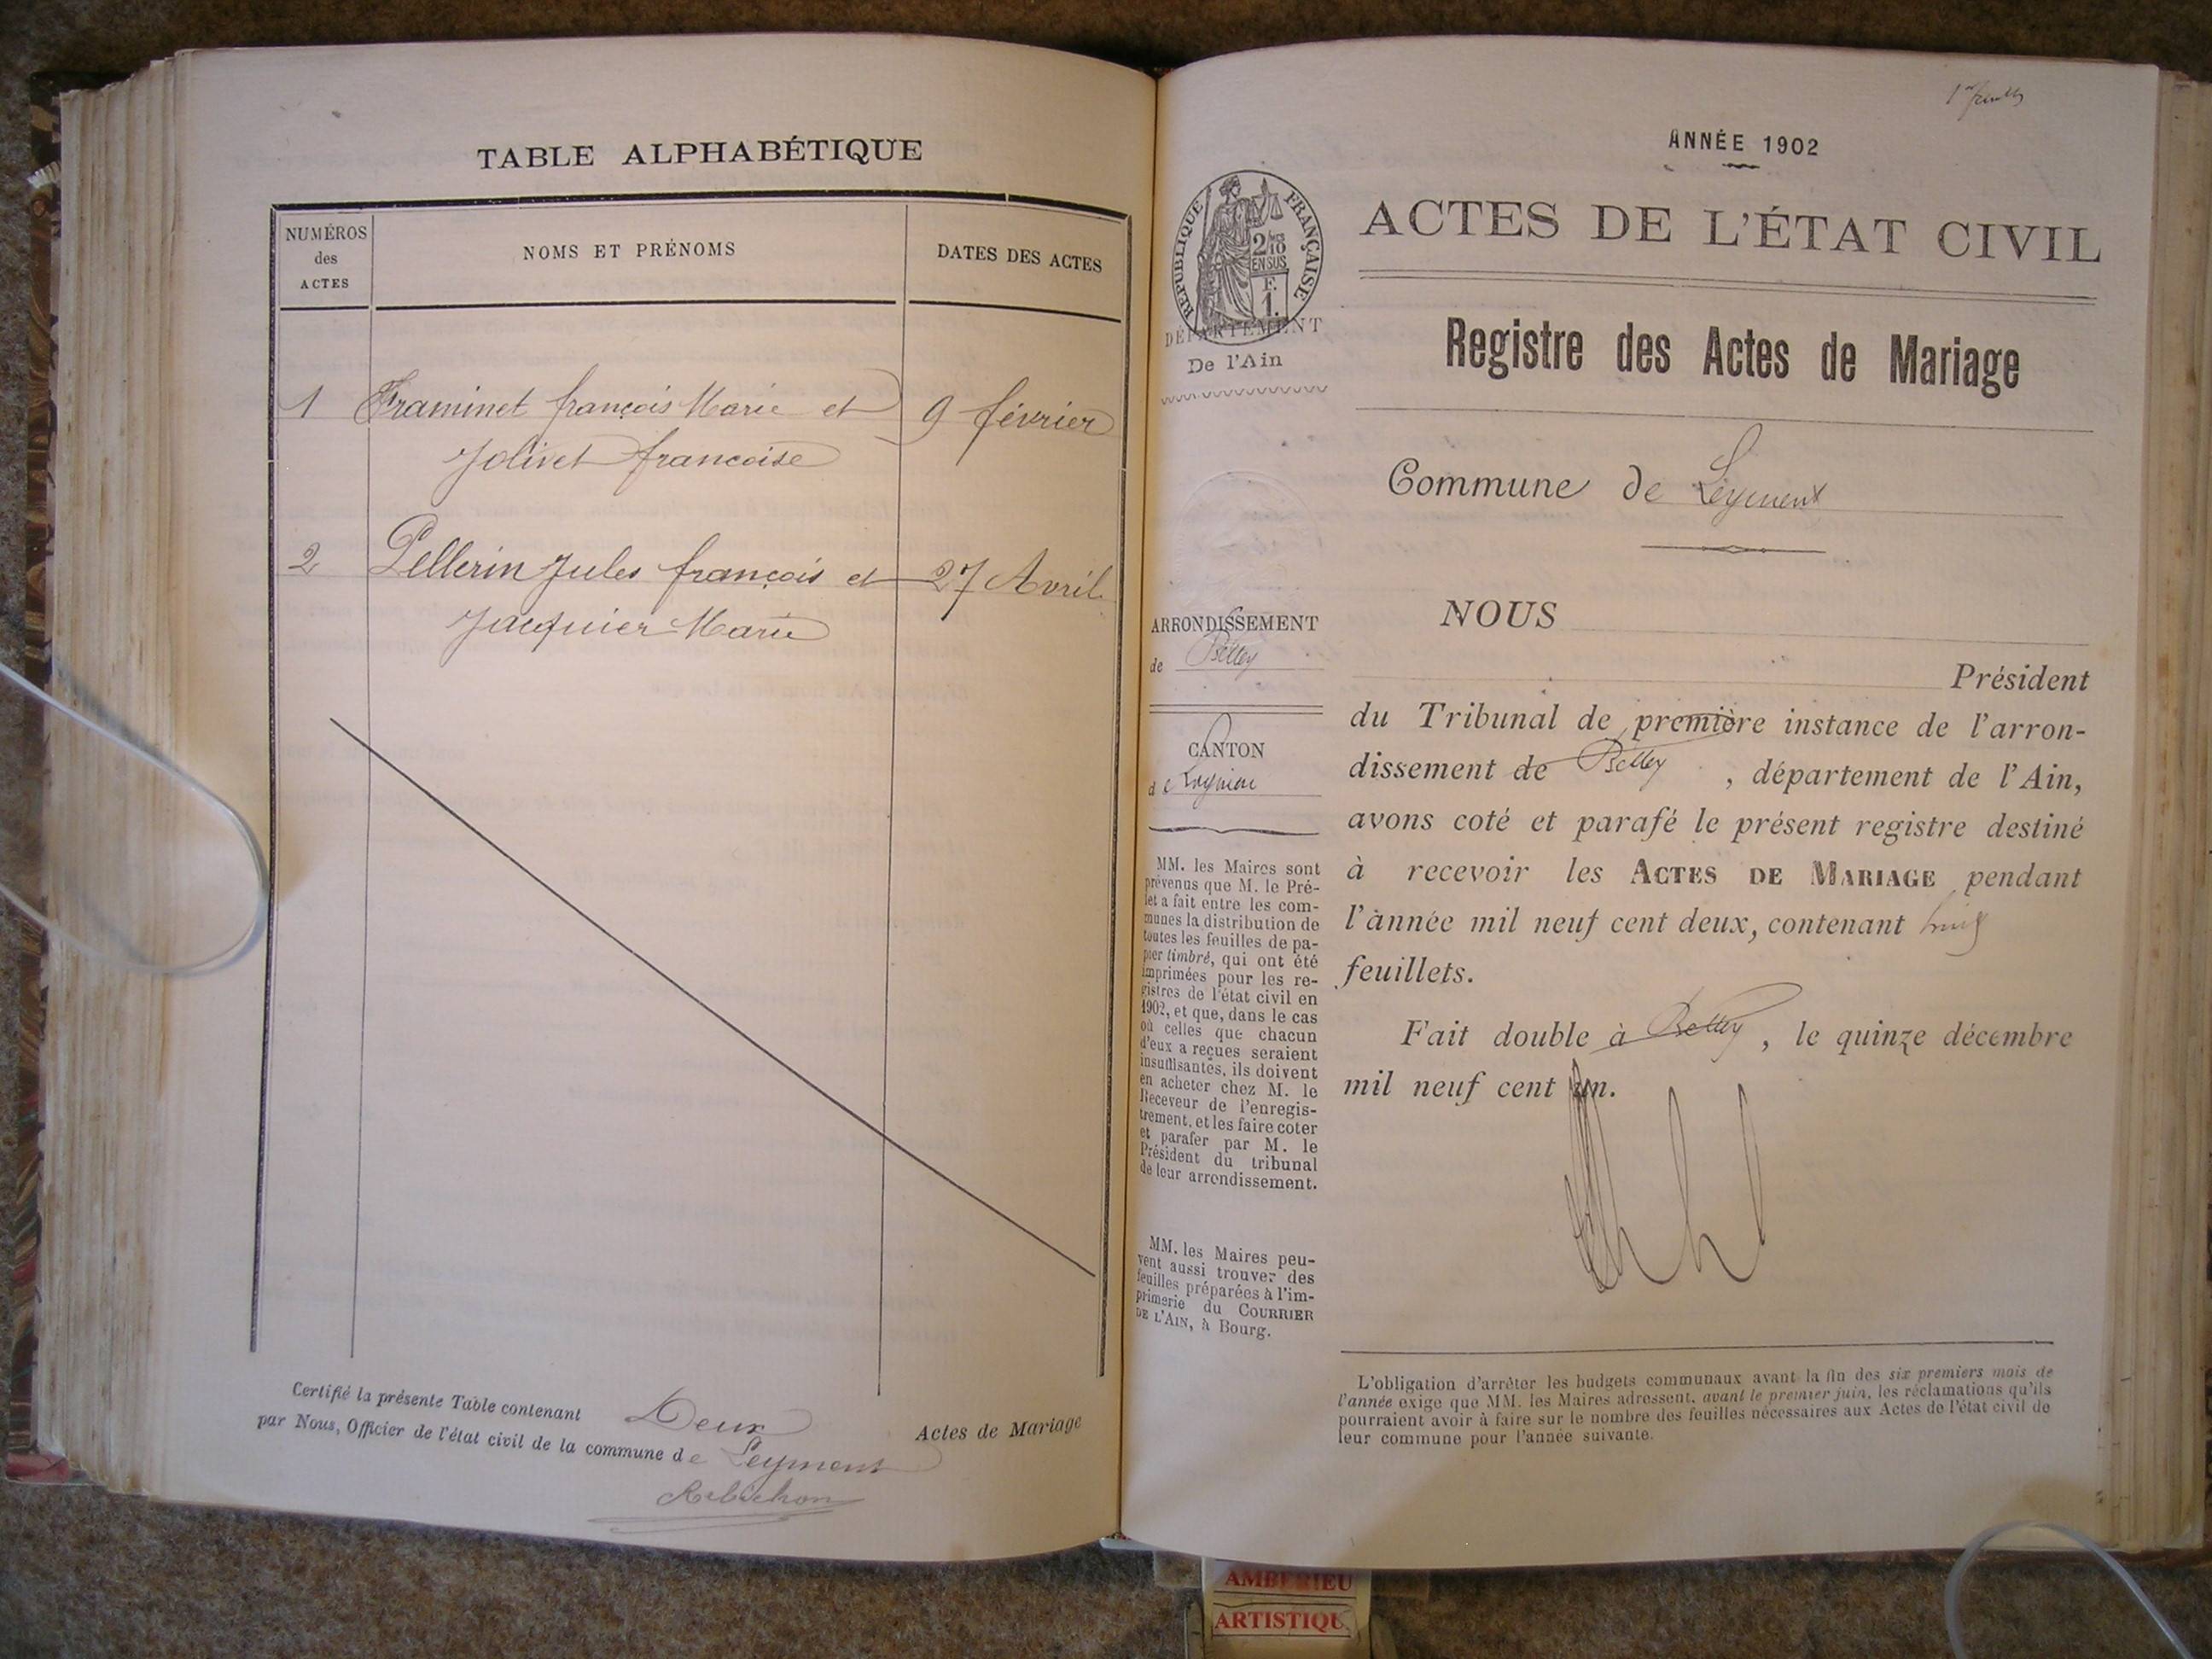 TABLE ALPHABÉTIQUE
NUMÉROS
des
ACTES
NOMS ET PRÉNOMS
DATES DES ACTES
1 Framinet françois Marie et 9 février
Jolivet francoise
2 Pellerin Jules françois et 27 Avril
Jacquier Marie
Certifié la présente Table contenant Deux Actes de Mariage
par Nous, Officier de l'état civil de la commune de Leyment
1er feuillet
ANNÉE 1902
RÉPUBLIQUE FRANÇAISE
2/10
EN SUS
F.
1.
DÉPARTEMENT
De l'Ain
ARRONDISSEMENT
de Belley
CANTON
de Lagnieu
MM. les Maires sont
prévenus que M. le Pré-
fet a fait entre les com-
munes la distribution de
toutes les feuilles de pa-
pier timbré, qui ont été
imprimées pour les re-
gistres de l'état civil en
1902, et que, dans le cas
où celles que chacun
d'eux a reçues seraient
insuffisantes, ils doivent
en acheter chez M. le
Receveur de l'enregis-
trement, et les faire coter
et parafer par M. le
Président du tribunal
de leur arrondissement.
MM. les Maires peu-
vent aussi trouver des
feuilles préparées à l'im-
primerie du COURRIER
DE L'AIN, à Bourg.
ACTES DE L'ÉTAT CIVIL
Registre des Actes de Mariage
Commune de Leyment
NOUS
Président
du Tribunal de première instance de l'arron-
dissement de Belley, département de l'Ain,
avons coté et parafé le présent registre destiné
à recevoir les ACTES DE MARIAGE pendant
l'année mil neuf cent deux, contenant huit
feuillets.
Fait double à Belley, le quinze décembre
mil neuf cent un.
L'obligation d'arrêter les budgets communaux avant la fin des six premiers mois de
l'année exige que MM. les Maires adressent, avant le premier juin, les réclamations qu'ils
pourraient avoir à faire sur le nombre des feuilles nécessaires aux Actes de l'état civil de
leur commune pour l'année suivante.
AMBERIEU
ARTISTIQU